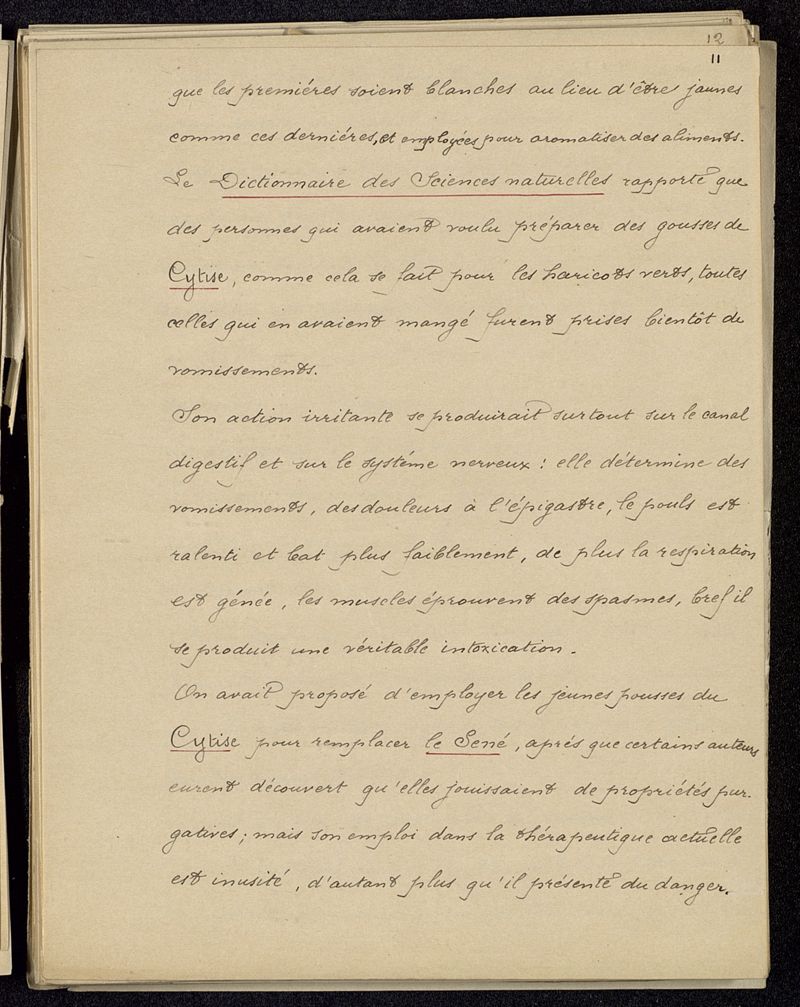 12
11
que les premiéres soient blanches au lieu d'être jaunes
comme ces derniéres, et employées pour aromatiser des aliments.
Le Dictionnaire des Sciences naturelles rapporte que
des personnes qui avaient voulu préparer des gousses de
Cytise, comme cela se fait pour les haricots verts, toutes
celles qui en avaient mangé furent prises bientôt de
vomissements.
Son action irritante se produirait surtout sur le canal
digestif et sur le systéme nerveux : elle détermine des
vomissements, des douleurs à l'épigastre, le pouls est
ralenti et bat plus faiblement, de plus la respiration
est génée, les muscles éprouvent des spasmes, bref il
se produit une véritable intoxication.
On avait proposé d'employer les jeunes pousses du
Cytise pour remplacer le Sené, aprés que certains auteurs
eurent découvert qu'elles jouissaient de propriétés pur-
gatives ; mais son emploi dans la thérapeutique actuelle
est inusité, d'autant plus qu'il présente du danger.